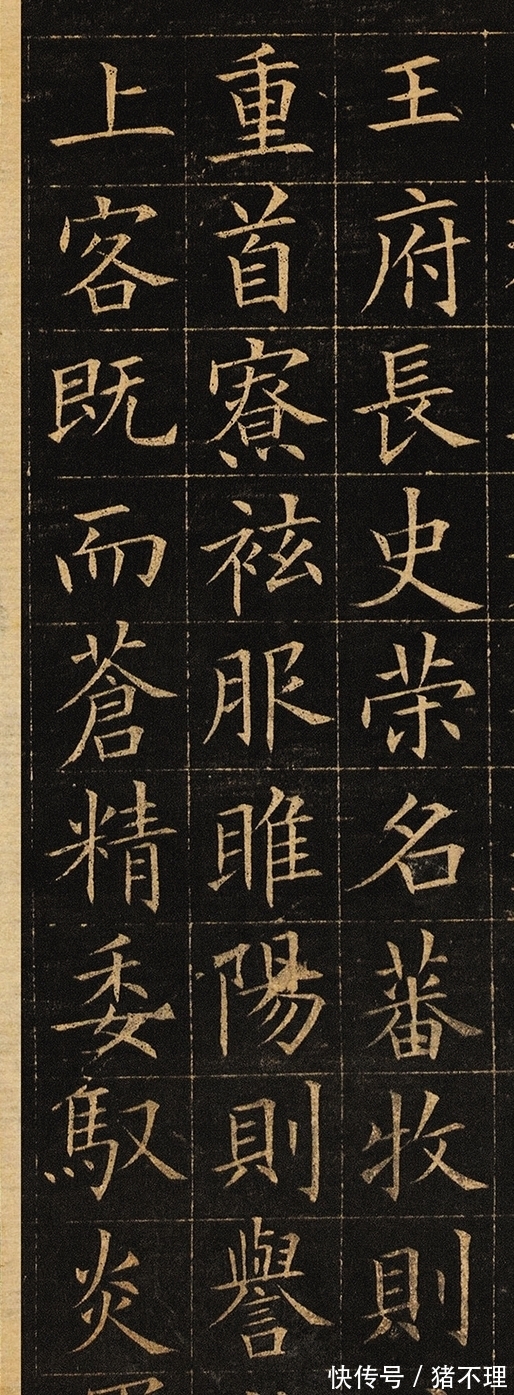 王府長史荣名蕃牧則
重首寮袨服睢陽則譽
上客既而蒼精委馭炎
快传号 / 猪不理